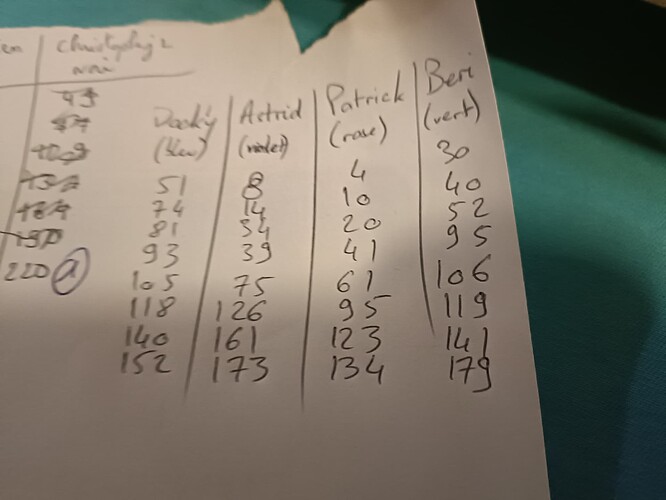 en
noir
Astrid Patrick Beri
(bleu) (violet) (rose) (vert)
30
51 8 4 40
74 14 10 52
81 34 20 95
93 39 41 106
105 75 61 119
118 126 95 141
140 161 123 179
152 173 134
220